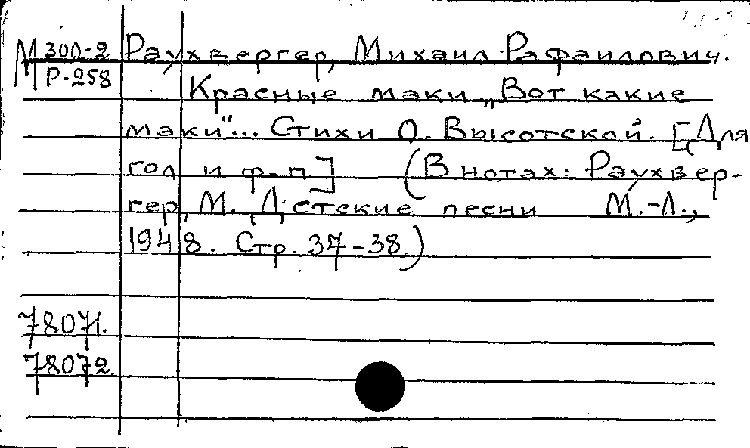 М 300-2 Раухвергер, Михаил Рафаилович.
Р-258
Красные маки „Вот какие
маки"... Стихи О. Высотской. [Для
гол и ф-п] (В нотах: Раухвер-
гер, М. Детские песни М.-Л.,
1948. Стр. 37-38)
78071.
78072.